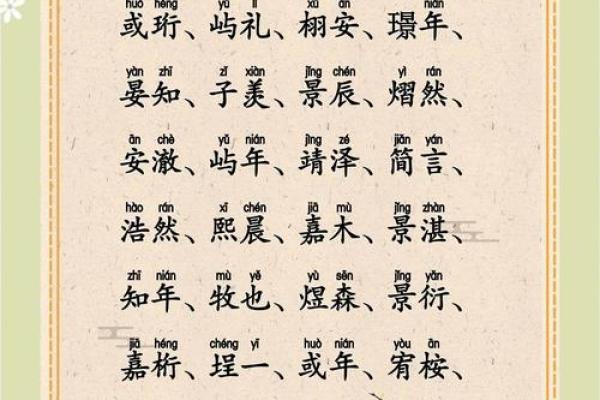 huò héng yǔ lǐ xǔ ān nián
或珩、屿礼、栩安、璟年、
yàn zhī zǐ xiàn jǐng chén yì rán
晏知、子羡、景辰、熠然、
ān chè yǔ nián jìng zé jiǎn yán
安澈、屿年、靖泽、简言、
hào rán xī chén jiā mù jǐng zhàn
浩然、熙晨、嘉木、景湛、
zhī nián mù yě yù sēn jǐng yǎn
知年、牧也、煜森、景衍、
jiā héng chéng yī huò nián yòu ān
嘉桁、埕一、或年、宥桉、